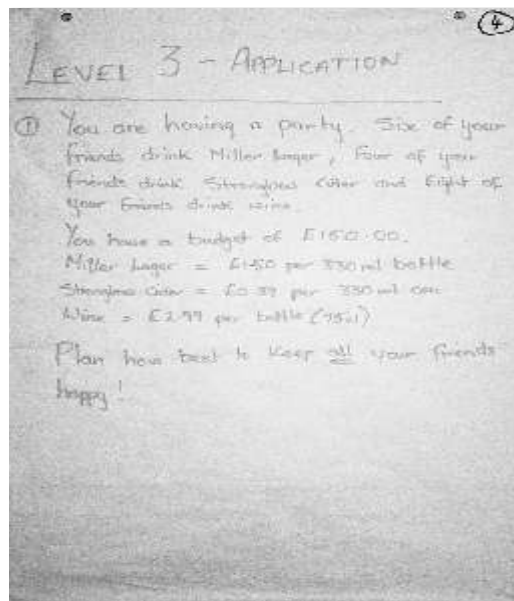 4
LEVEL 3 - APPLICATION
① You are having a party. Six of your
friends drink Miller Lager, Four of your
friends drink Strongbow Cider and Eight of
your friends drink wine.
You have a budget of £150.00.
Miller Lager = £1.50 per 330 ml bottle
Strongbow Cider = per 330 ml can
Wine = £2.99 per bottle
Plan how best to keep all your friends
happy!